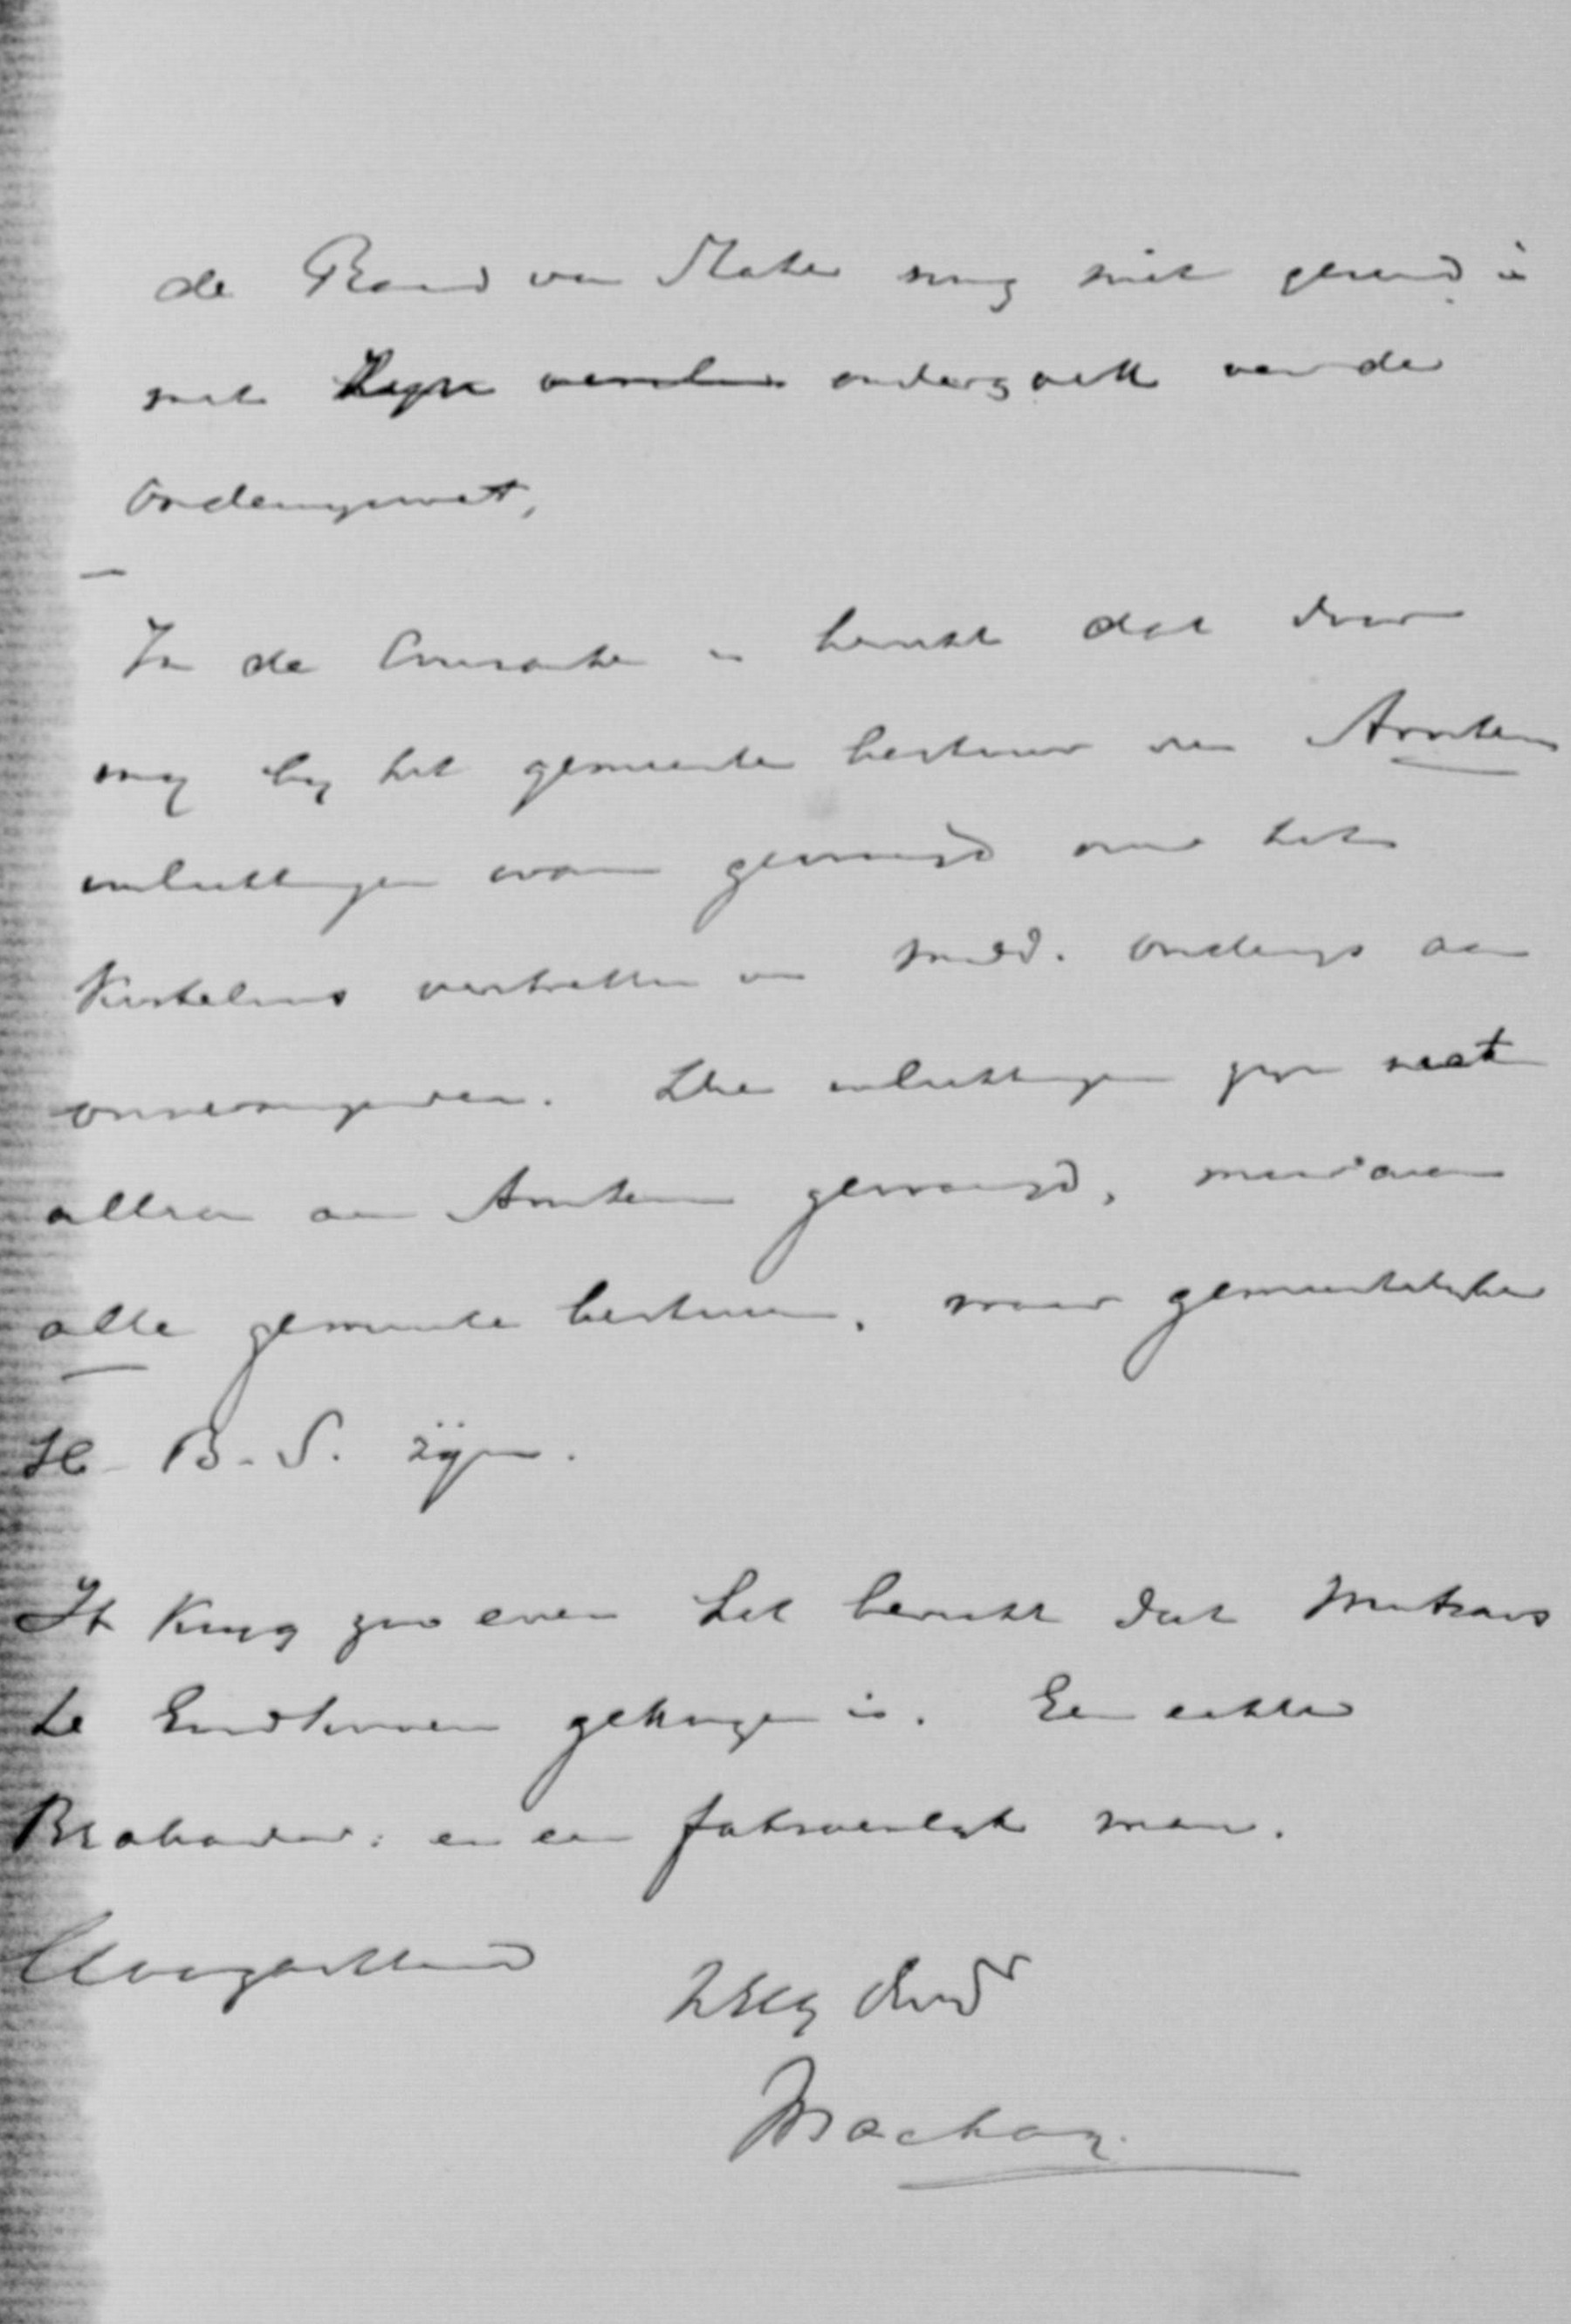 de Raad van State nog niet gereed is
met zijn onderzoek van de
Onderwijswet,
In de Courante is bericht dat door
mij bij het gemeente bestuur van Arnhem
inlichtingen waren gevraagd over het
kosteloos verstrekken van midd. onderwijs aan
onvermogenden. Die inlichtingen zijn niet
alleen aan Arnhem gevraagd, maar aan
alle gemeente besturen, waar gemeentelijke
H. B. S. zijn.
Ik krijg zoo even het bericht dat
te Eindhoven gekozen is. Een echte
Brabander: en een fatsoenlijk man.
Hoogachtend
UEdg Dienr
Mackay